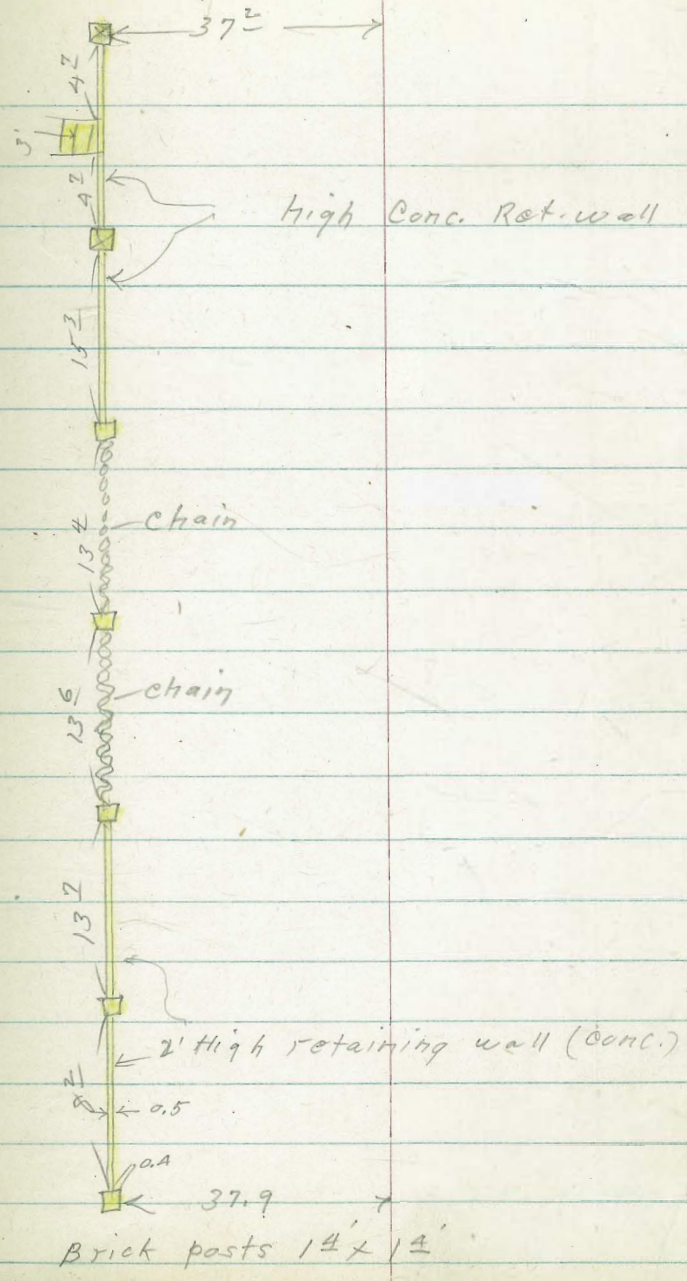 37 2
4 7
3'
4 7
High Conc. Ret. wall
15 3
chain
13 4
chain
13 6
13 7
2' High retaining wall (conc.)
0.5
0.4
37.9
Brick posts 1 4' x 1 4'